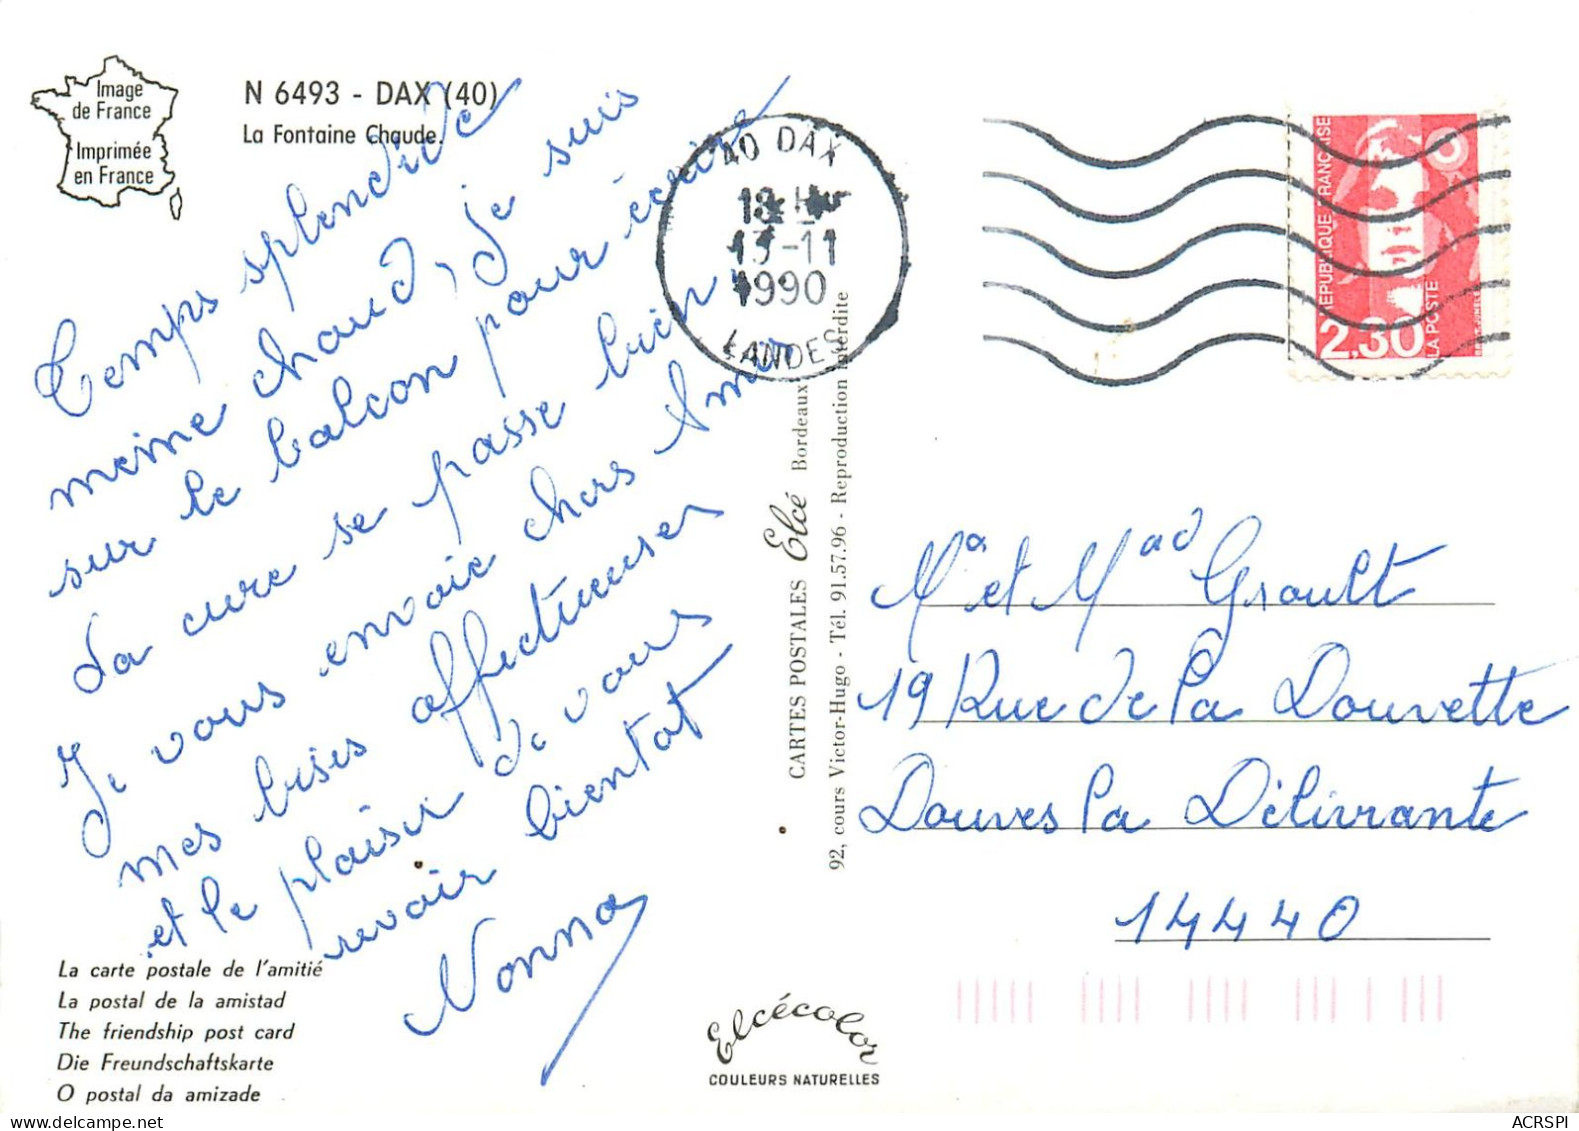 Image
de France
Imprimée
en France
N 6493 - DAX (40)
La Fontaine Chaude.
Temps splendide
meme chaud, je suis
sur le balcon pour écrire
La cure se passe bien
Je vous envoie chers Amis
mes bises affectueuses
et le plaisir de vous
revoir bientat
Nonna
La carte postale de l'amitié
La postal de la amistad
The friendship post card
Die Freundschaftskarte
O postal da amizade
Elcécolor
COULEURS NATURELLES
CARTES POSTALES Elcé Bordeaux
92, cours Victor-Hugo - Tél. 91.57.96 - Reproduction interdite
40 DAX
18 H
13-11
1990
LANDES
REPUBLIQUE FRANÇAISE
2,30
LA POSTE
Mr et Mad Grault
19 Rue de la Douvette
Douves la Délivrante
14440
ACRSPI